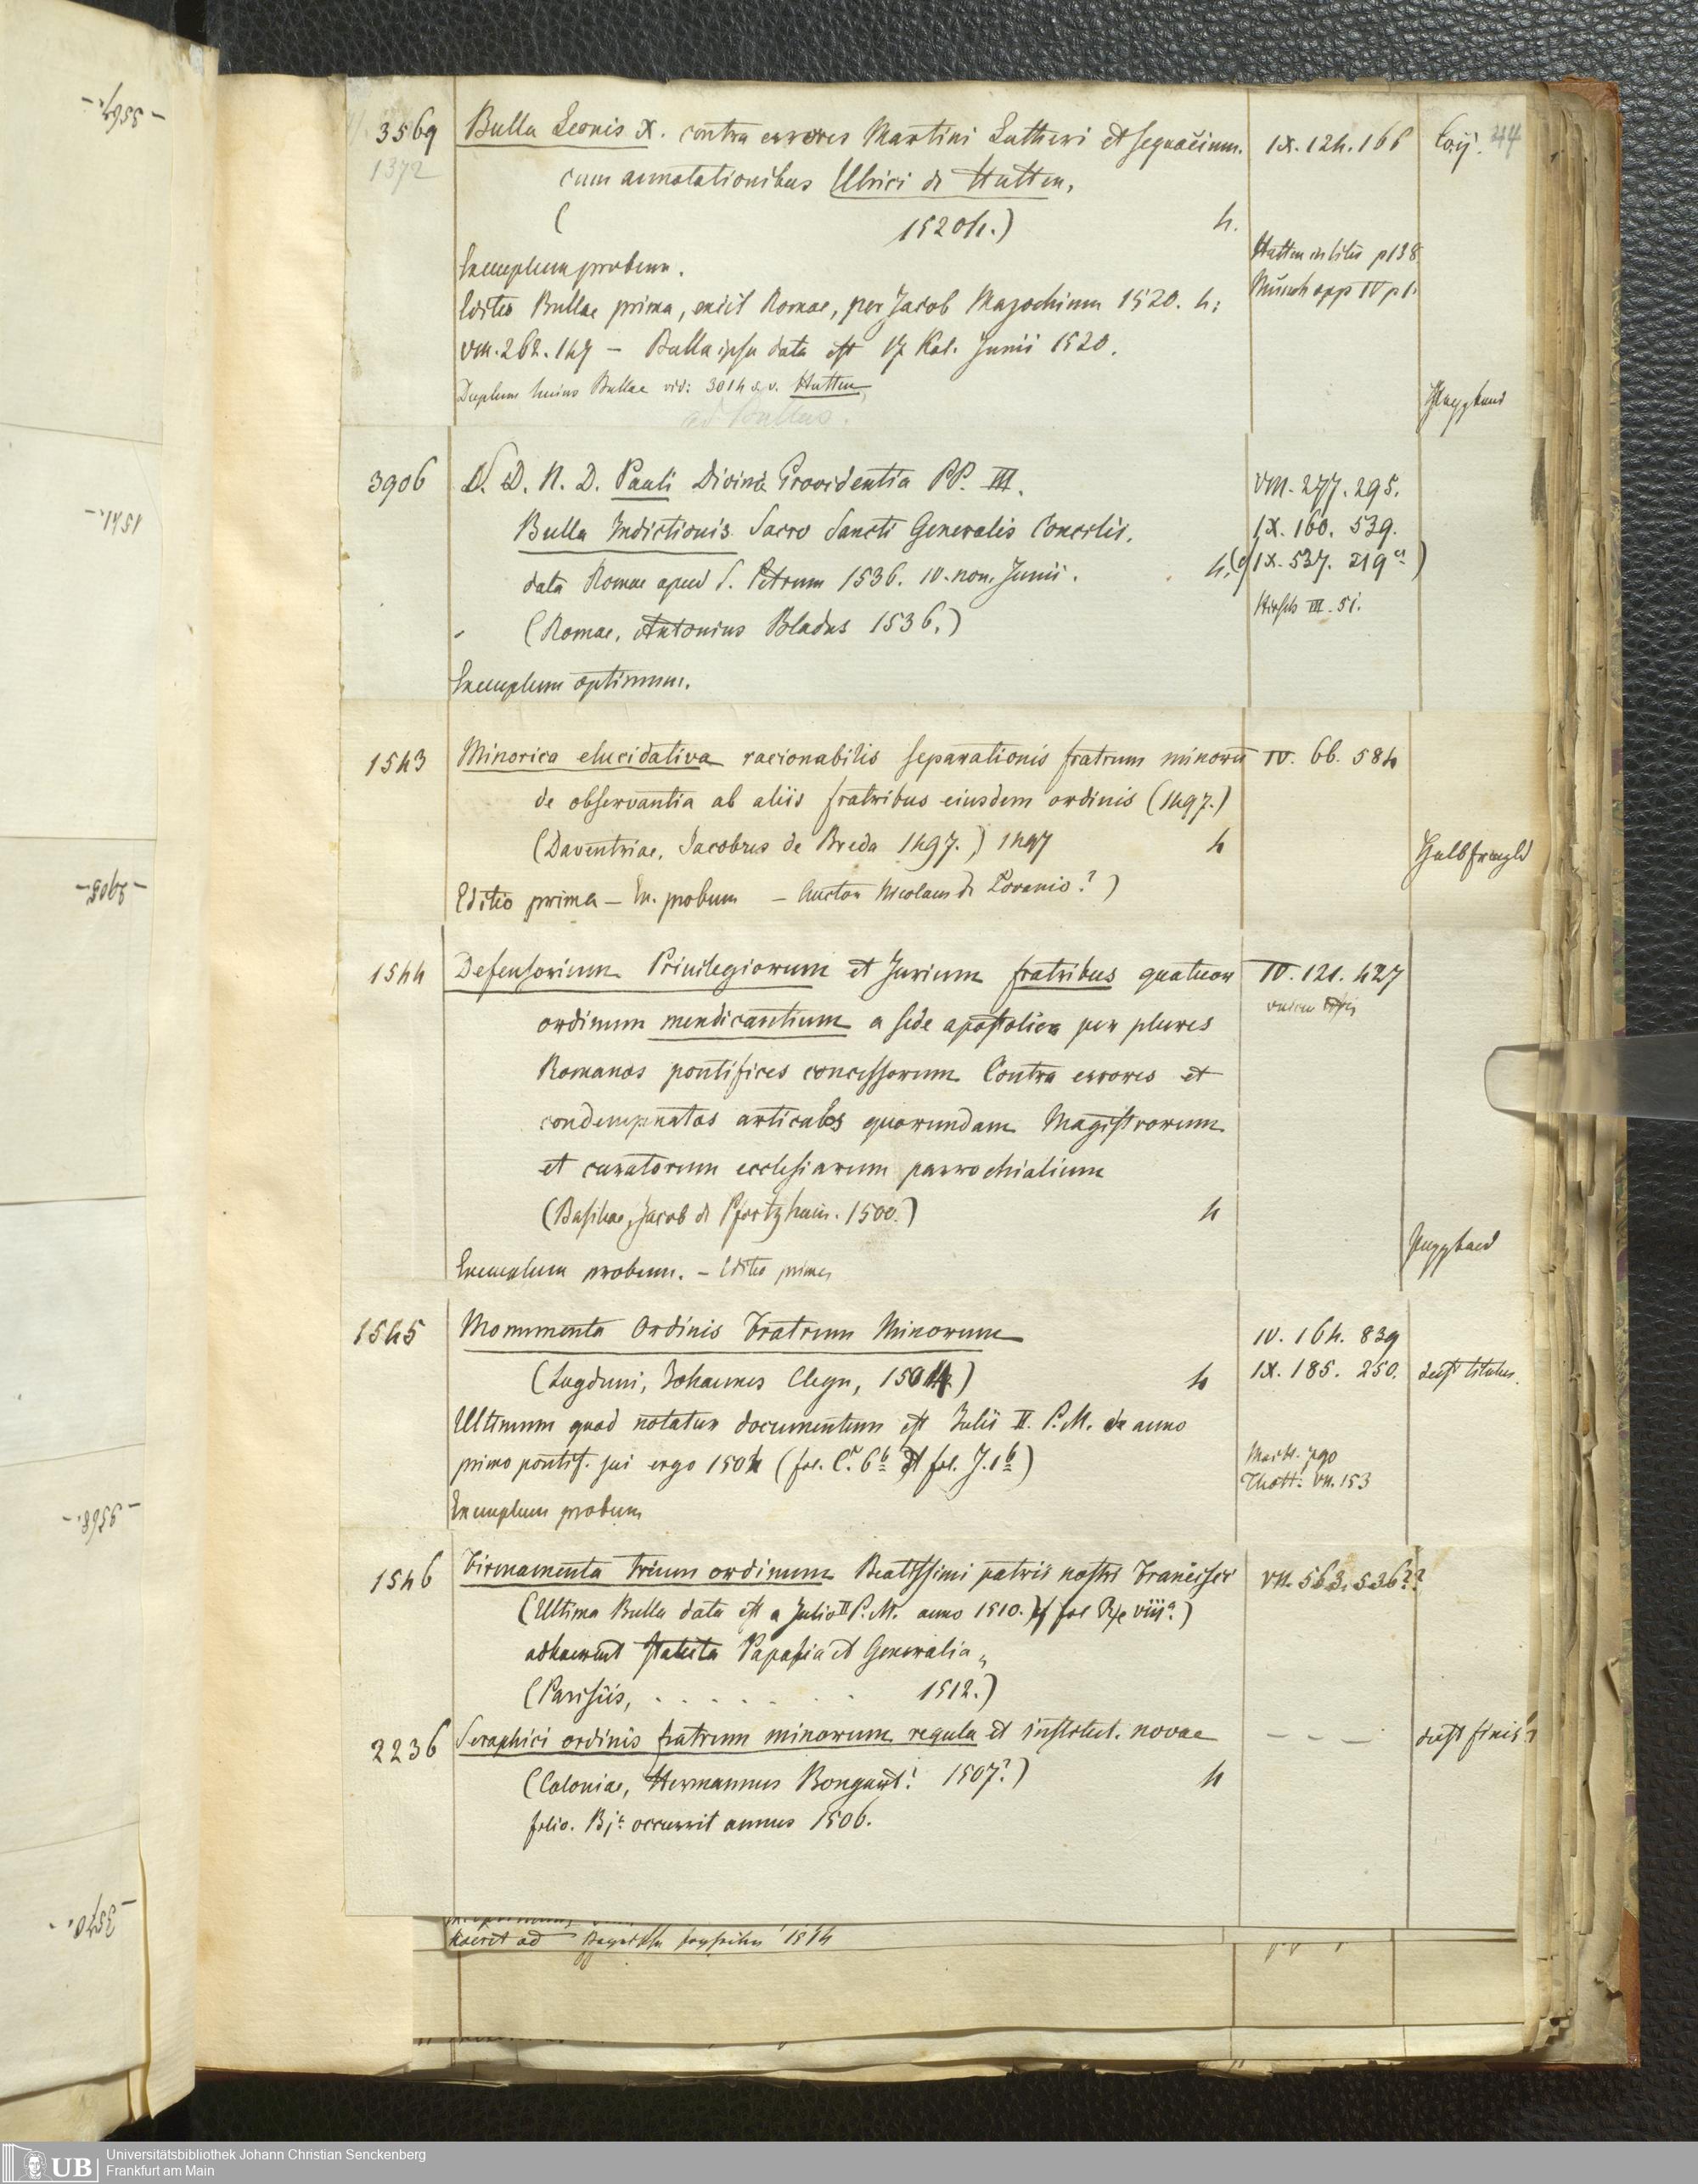 3569 Bulla Leonis X. contra errores Martini Lutheri et sequacium. IX. 124. 166
1372 cum annotationibus Ulrici de Hutten,
( 1520/1.) 4.
Exemplum probum.
Hutten p 138
Editio Bullae prima, exiit Romae, per Jacob Mazochium 1520. 4:
Münch opp IV p 1.
VIII. 262. 149 – Bulla ipsa data est 17 Kal. Junii 1520.
Duplum huius Bullae vid: 3014 s. v. Hutten,
ad Bullas.
Pappband
44
3906 S. D. N. D. Pauli Divina Providentia PP. III. VIII. 277. 295.
Bulla Indictionis Sacro Sancti Generalis Concilii. IX. 160. 539.
data Romae apud S. Petrum 1536. IV. non. Junii. 4. (cf IX. 537. 219a)
(Romae, Antonius Bladus 1536.) Hirsch III. 51.
Exemplum optimum.
1543 Minorica elucidativa racionabilis separationis fratrum minorū IV. 66. 584
de observantia ab aliis fratribus eiusdem ordinis (1497.)
(Daventriae, Jacobus de Breda 1497.) 1497 4
Halbfrzbd
Editio prima – Ex. probum – Auctor Nicolaus de Lovanio?)
1544 Defensorium Privilegiorum et Jurium fratribus quatuor IV. 121. 427
ordinum mendicantium a sede apostolica per plures
Romanos pontifices concessorum Contra errores et
condempnatos articulos quorundam Magistrorum
et curatorum ecclesiarum parrochialium
(Basileae, Jacob de Pfortzheim. 1500.) 4
Pappband
Exemplum probum. – Editio prima
1545 Monumenta Ordinis Fratrum Minorum IV. 164. 839
(Lugduni, Johannes Clegn, 1504) 4 IX. 185. 250. deest titulus.
Ultimum quod notatur documentum est Julii II. P. M. de anno
primo pontif. sui ergo 1504 (fol. C. 6b et fol. J. 1b)
Thott. VII. 153
Exemplum probum
1546 Firmamenta trium ordinum Beatissimi patris nostri Francisci VII. 563. 536??
(Ultima Bulla data est a Julio II P. M. anno 1510. cf fol viiia)
adhaerent Statuta Papalia et Generalia
(Parisiis, . . . . . . . 1512.)
2236 Seraphici ordinis fratrum minorum regula et institut. novae – – – deest finis
(Coloniae, Hermannus Bongart? 1507?) 4
folio. Bja occurrit annus 1506.
haeret ad 1514
- 3567. -
- 1541. -
- 3905 -
- 3568. -
- 3570. -
Universitätsbibliothek Johann Christian Senckenberg
Frankfurt am Main
UB